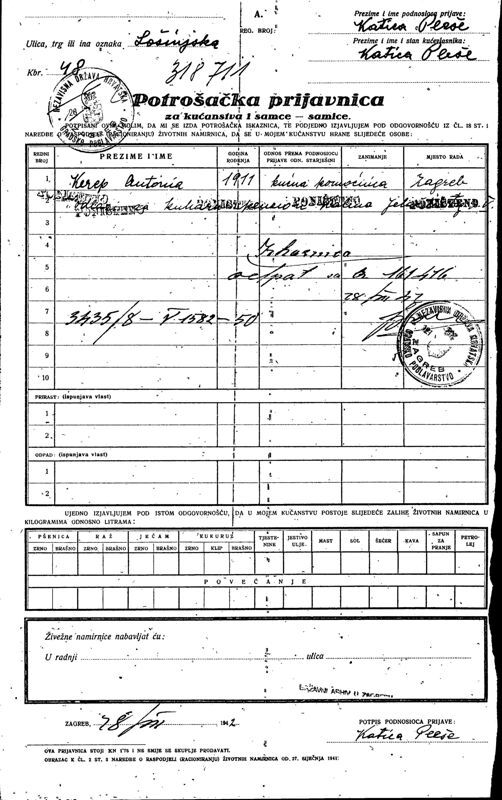 A.
REG. BROJ:
Prezime i ime podnosioca prijave:
Katica Pleše
Ulica, trg ili ina oznaka Lošinjska
Prezime i ime i stan kućevlasnika:
Katica Pleše
Kbr. 48
318711
NEZAVISNA DRŽAVA HRVATSKA
Potrošačka prijavnica
za kućanstva i samce — samice.
POTPISANI OVIME MOLIM, DA MI SE IZDA POTROŠAČKA ISKAZNICA, TE PODJEDNO IZJAVLJUJEM POD ODGOVORNOŠĆU IZ ČL. 18 ST. 1
NAREDBE O RASPODJELI (RACIONIRANJU) ŽIVOTNIH NAMIRNICA, DA SE U MOJEM KUĆANSTVU HRANE SLIJEDEĆE OSOBE:
REDNI BROJ PREZIME I IME GODINA ROĐENJA ODNOS PREMA PODNOSIOCU PRIJAVE ODN. STARJEŠINI ZANIMANJE MJESTO RADA
1. Kerep Antonia 1911 kućna pomoćnica Zagreb
PONIŠTENO PONIŠTENO PONIŠTENO
4
5
6
7
3435/8 — V 1582 — 50
8
9
10
NEZAVISNA DRŽAVA HRVATSKA
ZAGREB
POGLAVARSTVO
PRIRAST: (ispunjava vlast)
1
2.
OTPAD: (ispunjava vlast)
1
2
UJEDNO IZJAVLJUJEM POD ISTOM ODGOVORNOŠĆU, DA U MOJEM KUĆANSTVU POSTOJE SLIJEDEĆE ZALIHE ŽIVOTNIH NAMIRNICA U
KILOGRAMIMA ODNOSNO LITRAMA:
PŠENICA RAŽ JEČAM KUKURUZ TJESTENINE JESTIVO ULJE MAST SOL ŠEĆER KAVA SAPUN ZA PRANJE PETROLEJ
ZRNO BRAŠNO ZRNO BRAŠNO ZRNO BRAŠNO ZRNO KLIP BRAŠNO
POVEĆANJE
Živežne namirnice nabavljat ću:
U radnji ulica
DRŽAVNI ARHIV U ZAGREBU
ZAGREB, 28/VII 1942
POTPIS PODNOSIOCA PRIJAVE:
Katica Pleše
OVA PRIJAVNICA STOJI KN 1'75 I NE SMIJE SE SKUPLJE PRODAVATI.
OBRAZAC K ČL. 2 ST. 3 NAREDBE O RASPODJELI (RACIONIRANJU) ŽIVOTNIH NAMIRNICA OD 27. SIJEČNJA 1941.